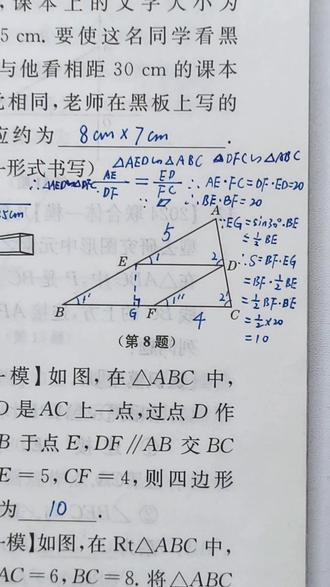 课本上的文字大小为
5 cm. 要使这名同学看黑
与他看相距 30 cm 的课本
相同, 老师在黑板上写的
应约为 8cm×7cm .
一形式书写)
△AED∽△ABC △DFC∽△ABC
∴ △AED∽△DFC AE/DF = ED/FC ∴ AE·FC=DF·ED=20
∵ BF= ▱ ∴ BE·BF=20
A
5
∵EG=sin30°·BE
=½BE
∴S=BF·EG
=BF·½BE
=½BF·BE
=½×20
=10
E 1 2 D
B 1 G F 1 4 2 C
(第 8 题)
一模】如图, 在△ABC 中,
D 是 AC 上一点, 过点 D 作
B 于点 E, DF∥AB 交 BC
E=5, CF=4, 则四边形
为 10 .
一模】如图, 在 Rt△ABC 中,
AC=6, BC=8. 将△ABC